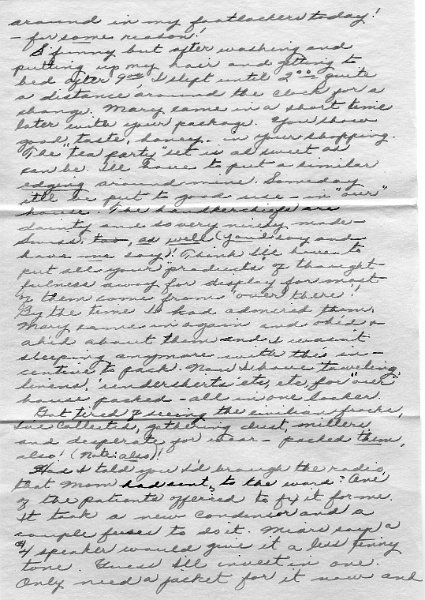 around in my footlockers today!
- for some reason!
S'funny but after washing and
putting up my hair and getting to
bed after 9:00 I slept until 2:00 quite
a distance around the clock for a
change. Mary came in a short time
later with your package. You show
good taste, honey, in your shopping.
The "tea party" set is as sweet as
can be. I'll have to put a similar
edging around mine. Someday
it'll be put to good use - in "our"
house. The handkerchiefs are
dainty and so very nicely made -
Swiss, too, as well (you'd say and
have me say)! Think I'll have to
put all your products of thought-
fulness away for display for most
of them come from "over there"!
By the time I had admired them,
Mary came in again and oh'd &
ah'd about them and I wasn't
sleeping anymore with this in-
centive to pack. Now I have toweling,
linens, undershirts etc, etc, for "our"
house packed - all in one locker.
But tired of seeing the civilian frocks,
I've collected, gathering dust, millers
and desperate for wear - packed them,
also! (Note: also)!
Had I told you I'd brough the radio,
that Mom had sent, to the ward? One
of the patients offered to fix it for me.
It took a new condensor and a
couple fuses to do it. Miars says a
4" speaker would give it a less tinny
tone. Guess I'll invest in one.
Only need a jacket for it now and